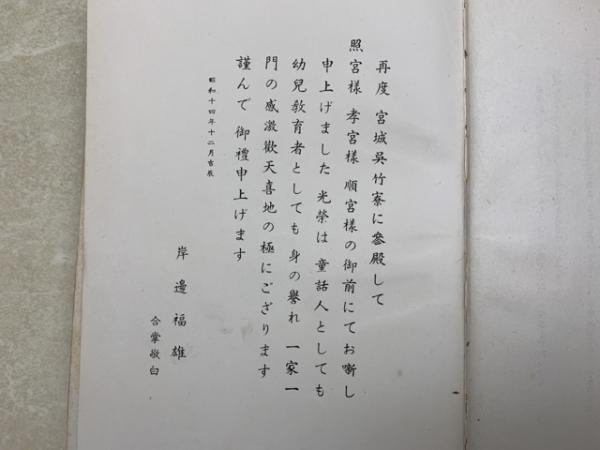 再度 宮城呉竹寮に參殿して
照宮様 孝宮様 順宮様の御前にてお噺し
申上げました 光榮は 童話人としても
幼兒敎育者としても 身の譽れ 一家一
門の感激歡天喜地の極にござります
謹んで 御禮申上げます
昭和十四年十二月吉辰
岸邊福雄
合掌敬白